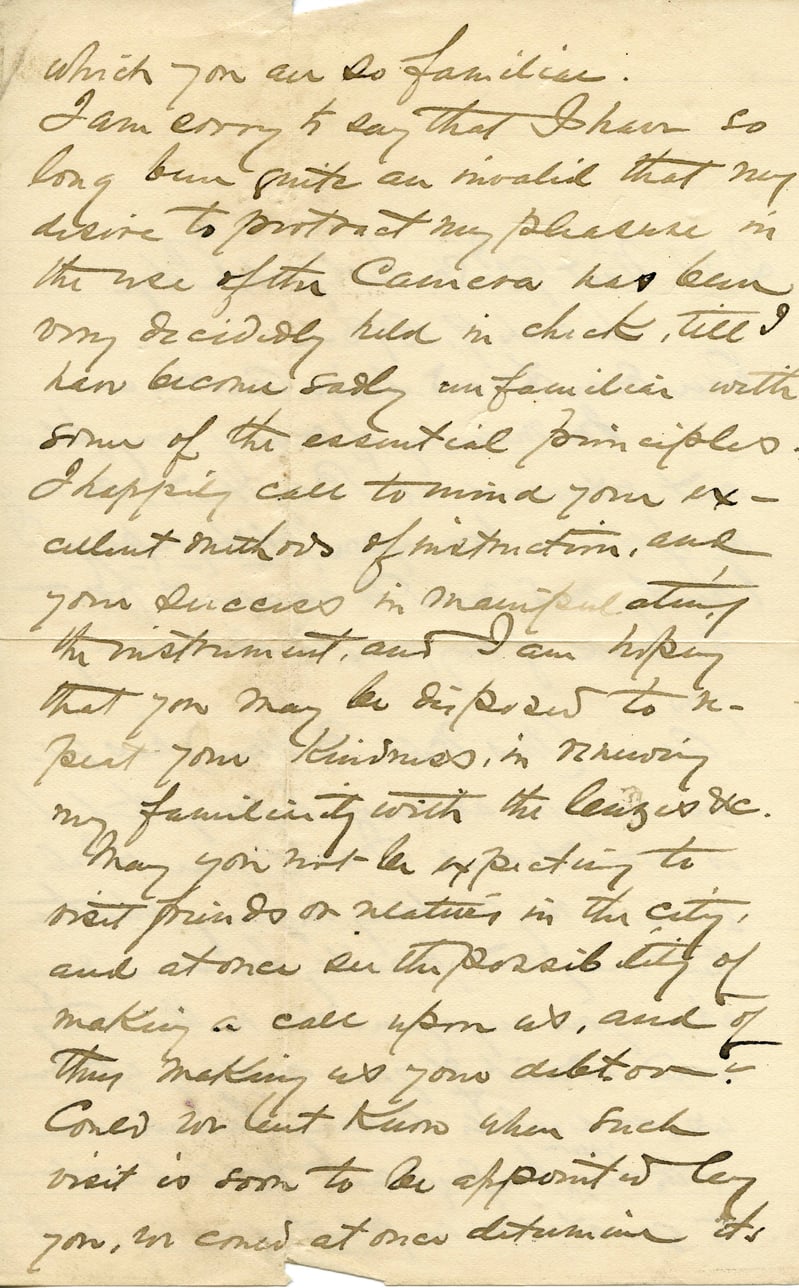 which you are so familiar.
I am sorry to say that I have so
long been quite an invalid that my
desire to protract my pleasure in
the use of the Camera has been
very decidedly held in check, till I
have become sadly unfamiliar with
some of the essential principles.
I happily call to mind your ex-
cellent methods of instruction, and
your success in manipulating
the instrument, and I am hoping
that you may be disposed to re-
peat your kindness, in renewing
my familiarity with the lenzes &c.
May you not be expecting to
visit friends or relatives in the city,
and at once see the possibility of
making a call upon us, and of
thus making us your debtor?
Could we but know when such
visit is soon to be appointed by
you, we could at once determine its